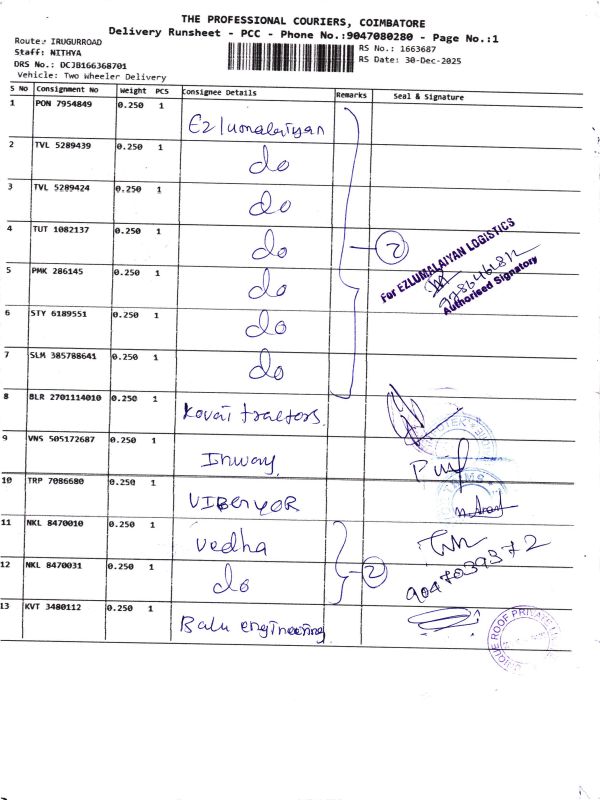 THE PROFESSIONAL COURIERS, COIMBATORE
Delivery Runsheet - PCC - Phone No.:9047080280 - Page No.:1
Route:- IRUGURROAD
Staff: NITHYA
DRS No.: DCJB166368701
Vehicle: Two Wheeler Delivery
RS No.: 1663687
RS Date: 30-Dec-2025
S No Consignment No Weight PCS Consignee Details Remarks Seal & Signature
1 PON 7954849 0.250 1 Ezlumalaiyan
2 TVL 5289439 0.250 1 do
3 TVL 5289424 0.250 1 do
4 TUT 1082137 0.250 1 do
5 PMK 286145 0.250 1 do
6 STY 6189551 0.250 1 do
7 SLM 385788641 0.250 1 do
For EZLUMALAIYAN LOGISTICS
Authorised Signatory
8 BLR 2701114010 0.250 1 Kovai tractors.
9 VNS 505172687 0.250 1 Inway,
10 TRP 7086680 0.250 1
11 NKL 8470010 0.250 1 Vedha
12 NKL 8470031 0.250 1 do 2
9047039372
13 KVT 3480112 0.250 1 Balu engineering